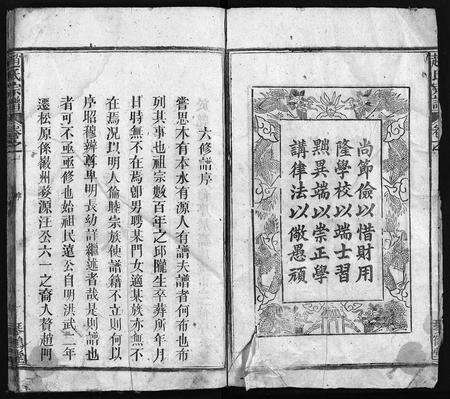 尚節儉以惜財用
隆學校以端士習
黜異端以崇正學
講律法以儆愚頑
六修譜序
嘗思木有本水有源人有譜夫譜者何布也布
列其事也祖宗數百年之邱隴生卒葬所年月
日時無不在焉即男聘某門女適某族亦無不
在焉况以明人倫睦宗族使譜籍不立則何以
序昭穆辨尊卑明長幼詳繼述者哉是則譜也
者可不亟亟修也始祖民遠公自明洪武二年
遷松原係徽州婺源汪公六一之裔入贅趙門